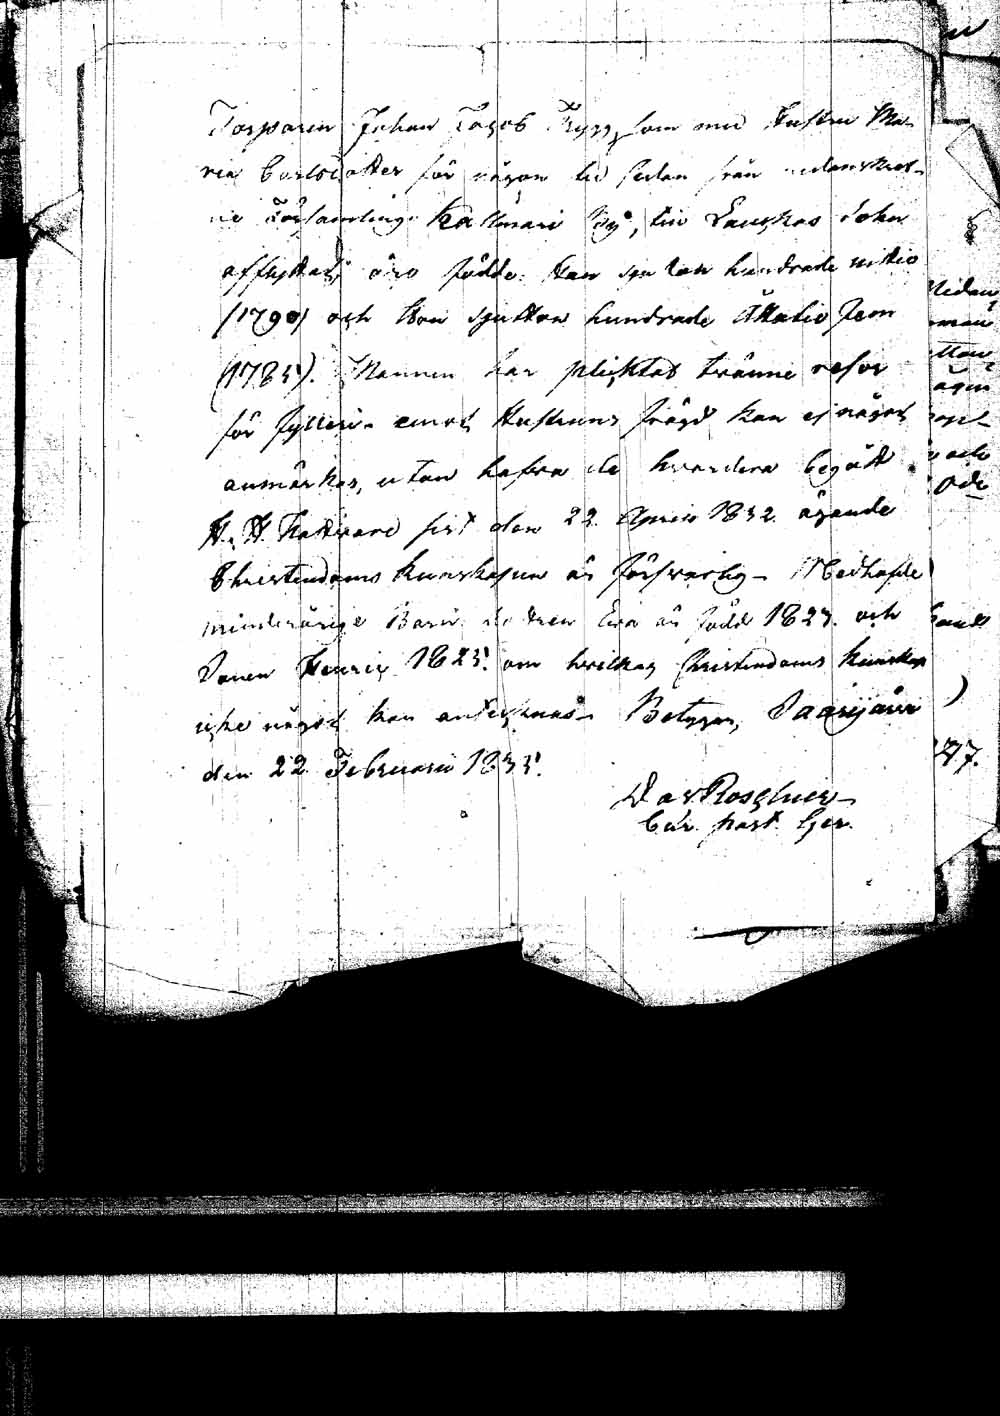 Torparen Johan Jacob Trygg, som med Hustru Ma-
ria Carlsdotter för någon tid sedan från nedanskref-
ne Församling Kallmari By, till Laukas Sokn
afflyttat, äro födde: Han sjutton hundrade nittio
(1790) och Hon sjutton hundrade Åttatio fem
(1785). Mannen har pliktat tränne resor
för fylleri emot Hustruns frägd kan ej något
anmärkas, utan hafva de hvardera begått
H. H. Nattvard sist den 22 April 1832 ägande
Christendoms Kunskapen är försvarlig - Medhafde
minderårige Barn: dottren Eva är född 1823. och
Sonen Henric 1825. om hvilkas Christendoms kunskap
icke något kan antecknas. Betygar, Saarijärvi
den 22 Februarii 1835.
Dav Roschier
Cur. past. Ger.
nedan
man
ägin
och
247.